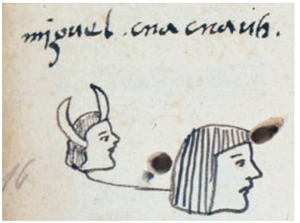 miguel . cua cuauh .
16